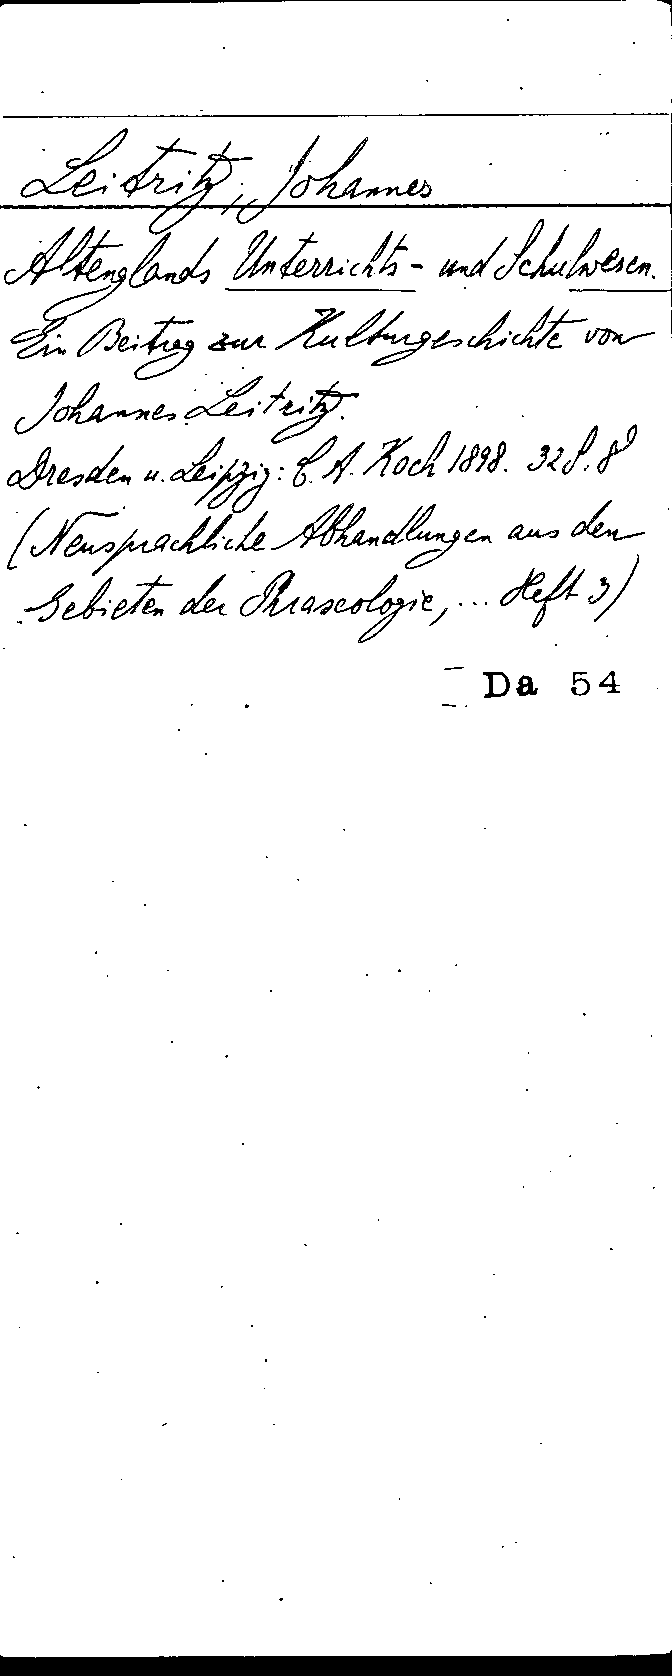 Leitritz, Johannes
Altenglands Unterrichts- und Schulwesen.
Ein Beitrag zur Kulturgeschichte von
Johannes Leitritz.
Dresden u. Leipzig: C. A. Koch 1898. 32 S. 8°
(Neusprachliche Abhandlungen aus den
Gebieten der Phraseologie, ... Heft 3)
Da 54